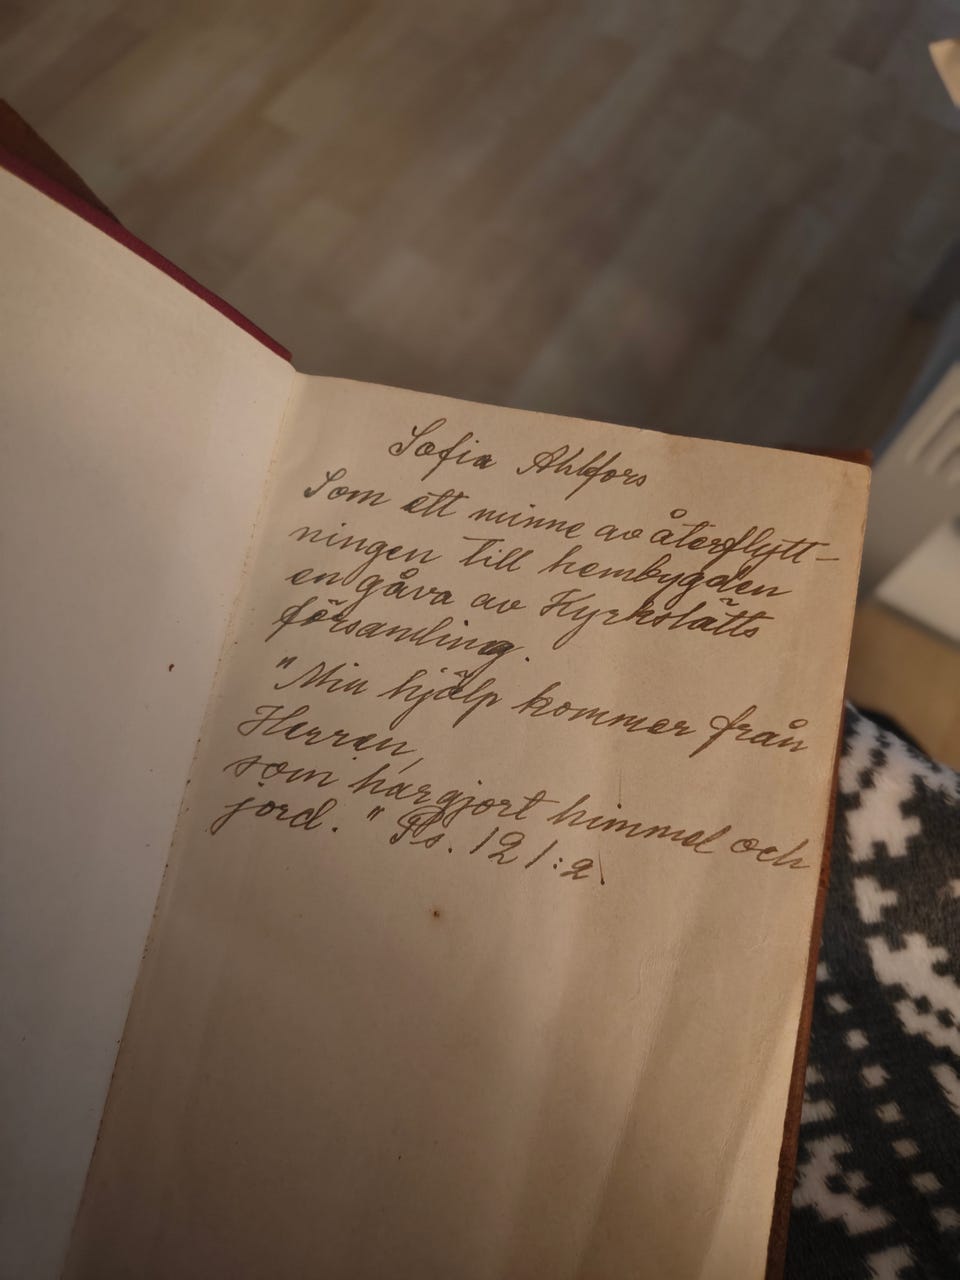 Sofia Ahlfors
Som ett minne av återflytt-
ningen till hembygden
en gåva av Kyrkslätts
församling.
"Min hjälp kommer från
Herren,
som har gjort himmel och
jord." Ps. 121:2.